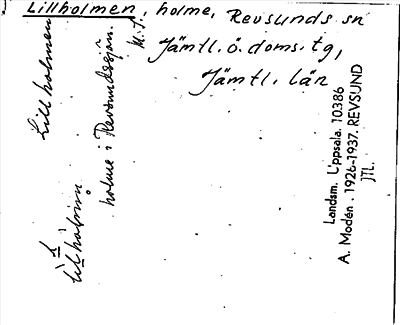 Lillholmen, holme, Revsunds sn
Jämtl. ö. doms. tg,
Jämtl. län
Lillholmen
holme i Revsundssjön.
M.S.
Landsm. Uppsala. 10386
A. Modén. 1926-1937. REVSUND
JTL.